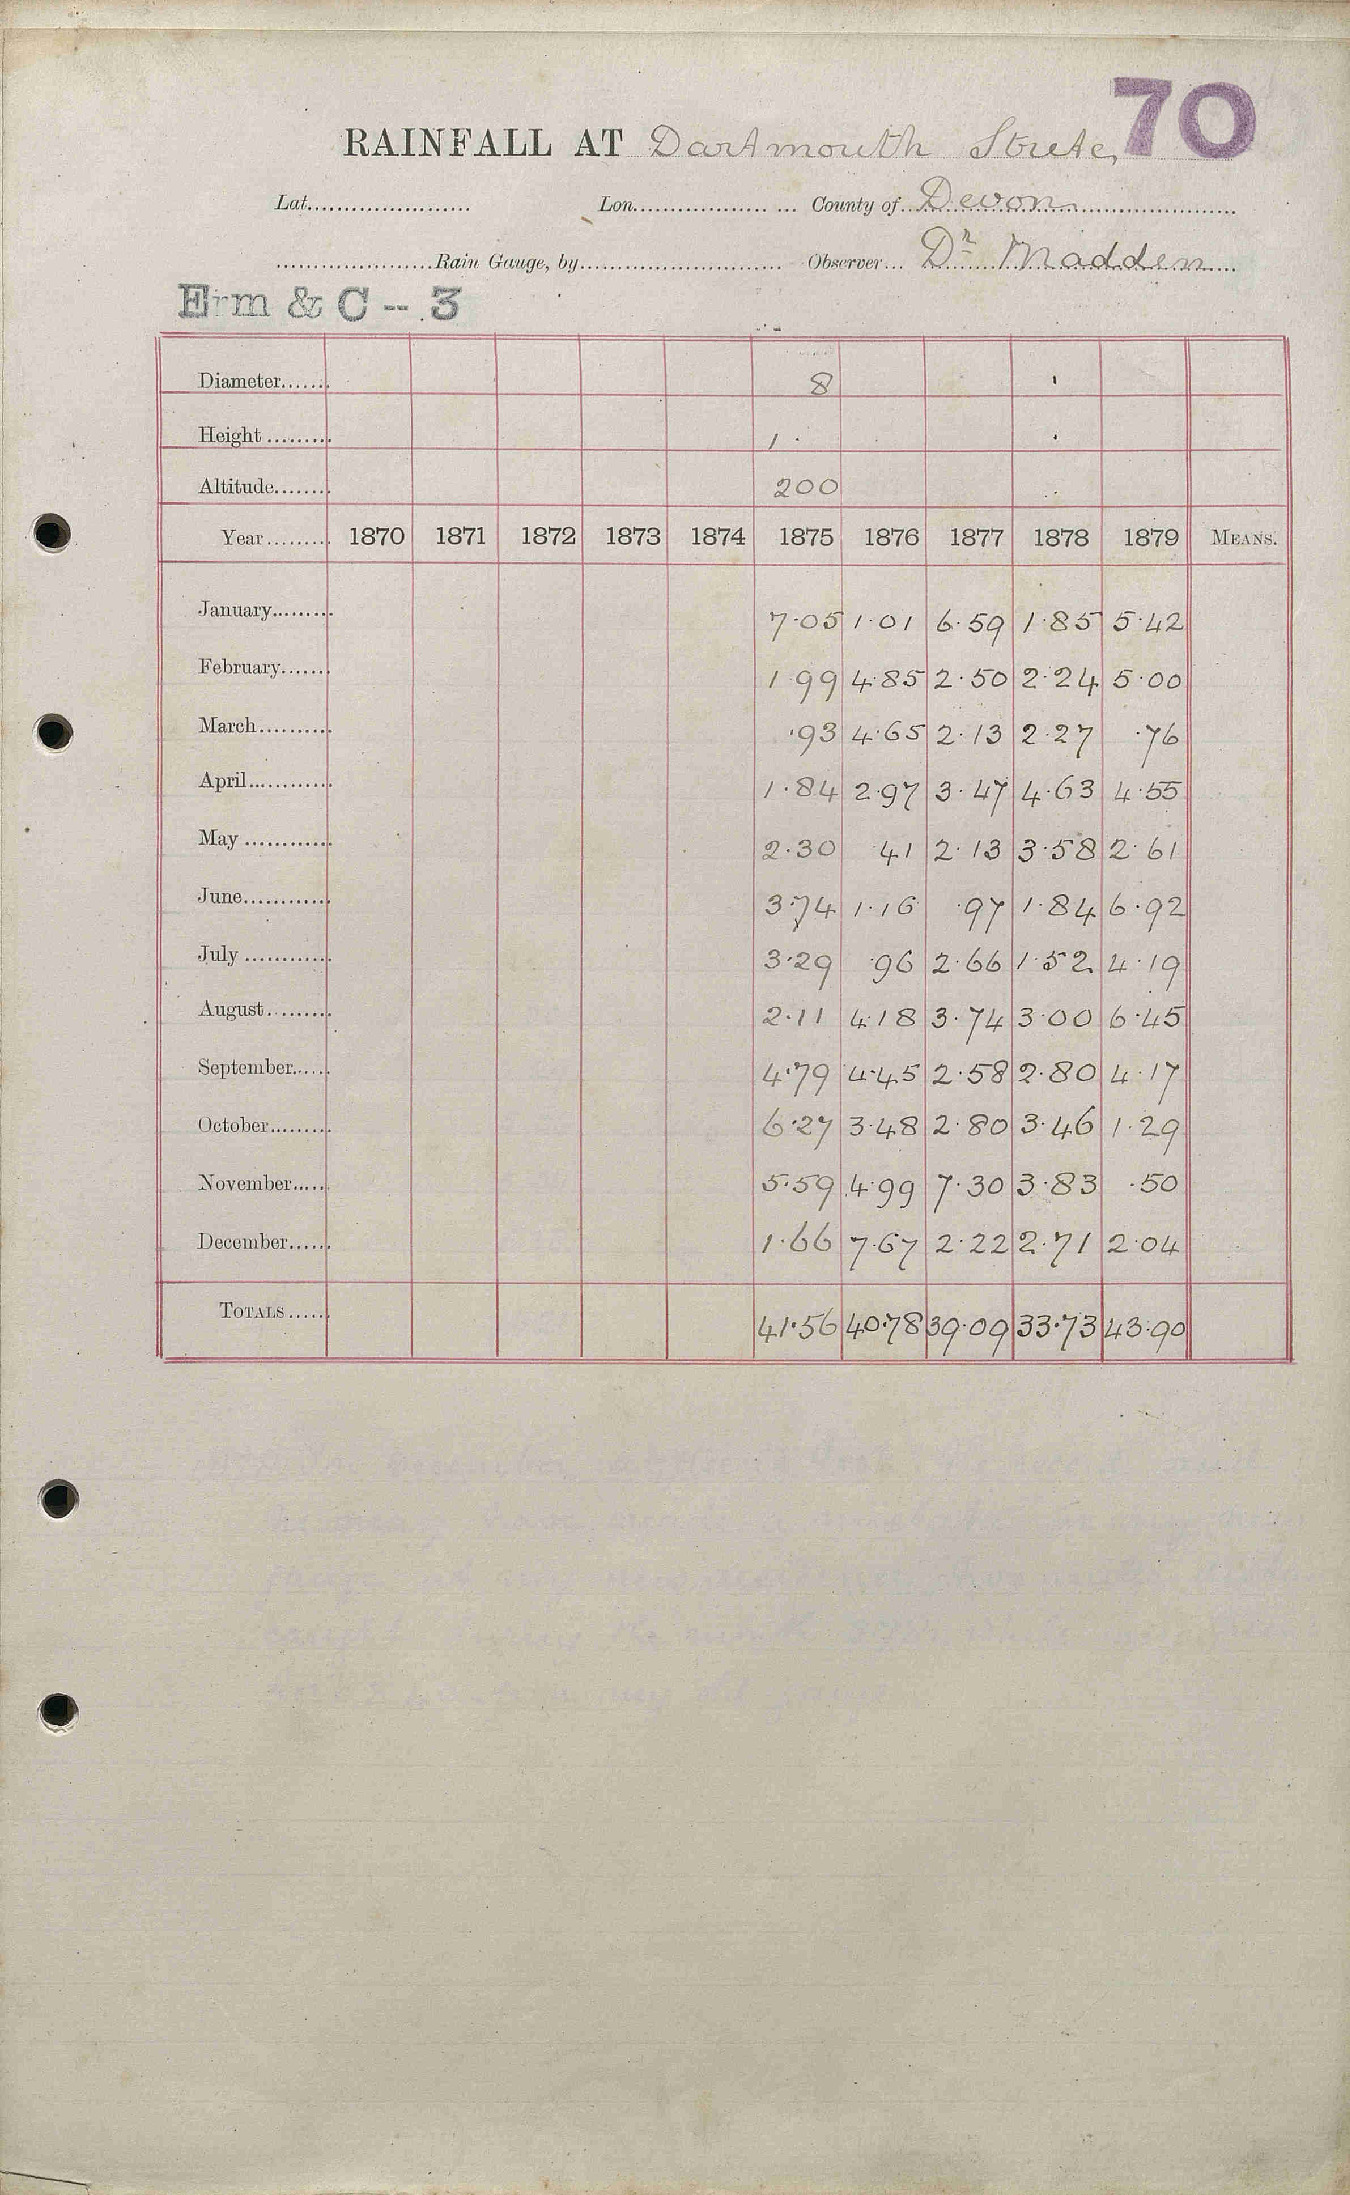 70
RAINFALL AT Dartmouth Strete,
Lat. Lon. County of Devon
Rain Gauge, by Observer Dr Madden
Erm & C -- 3
Diameter 8
Height 1
Altitude 200
Year 1870 1871 1872 1873 1874 1875 1876 1877 1878 1879 MEANS.
January 7·05 1·01 6·59 1·85 5·42
February 1·99 4·85 2·50 2·24 5·00
March ·93 4·65 2·13 2·27 ·76
April 1·84 2·97 3·47 4·63 4·55
May 2·30 41 2·13 3·58 2·61
June 3·74 1·16 ·97 1·84 6·92
July 3·29 ·96 2·66 1·52 4·19
August 2·11 4·18 3·74 3·00 6·45
September 4·79 4·45 2·58 2·80 4·17
October 6·27 3·48 2·80 3·46 1·29
November 5·59 4·99 7·30 3·83 ·50
December 1·66 7·67 2·22 2·71 2·04
TOTALS 41·56 40·78 39·09 33·73 43·90